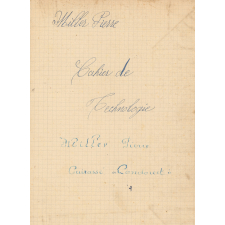 Miller Pierre
Cahier de
Technologie
Meiller Pierre